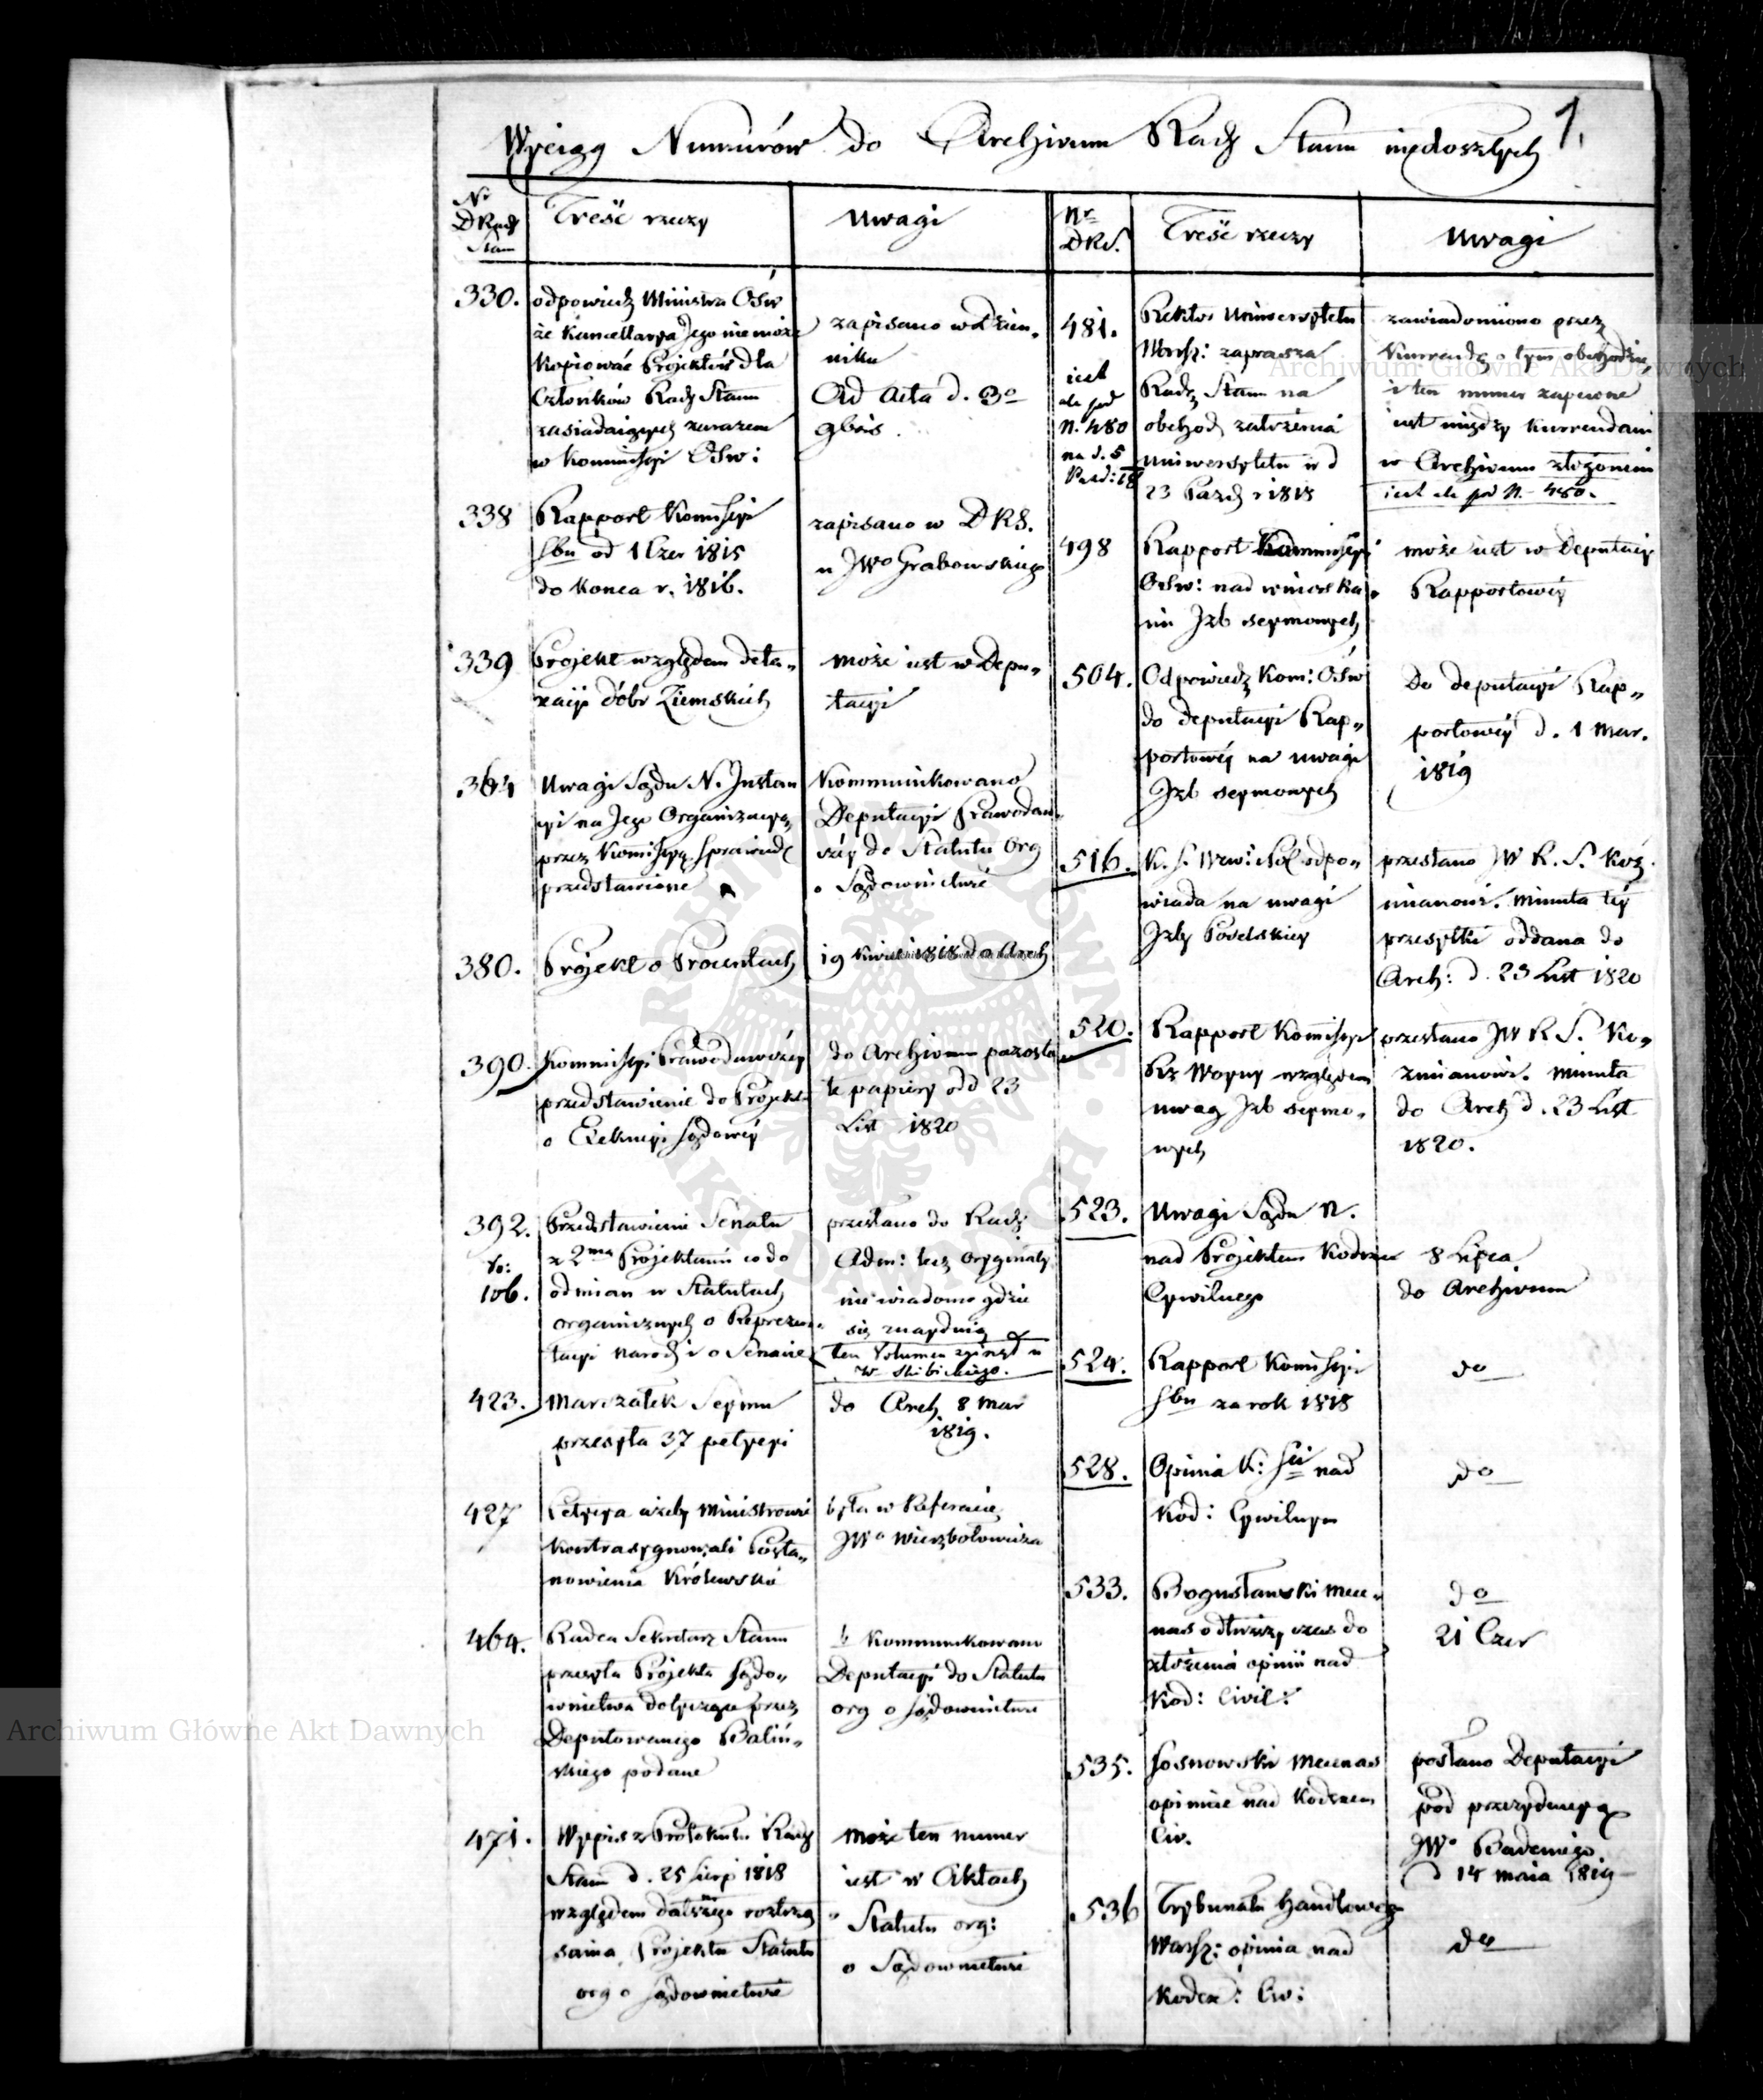 Wyciąg Numerów do Archivum Rady Stanu niedoszłych
1.
Nr
DRady
Stan
Treść rzeczy
Uwagi
330.
odpowiedź Ministra Ośw
że Kancellarya Jego nie może
kopiować Projektów dla
Członków Rady Stanu
zasiadaiących zarazem
w Kommissyi Ośw:
zapisano w Dzien„
niku
Ad Acta d. 30
9bris.
338
Rapport Komissyi
Sbu od 1 Czer 1815
do konca r. 1816.
zapisano w DRS.
u JWo Grabowskiego
339
Projekt względem deta„
xacyi dóbr Ziemskich
może iest w Depu„
tacyi
364
Uwagi Sądu N. Instan
cyi na Jego Organizacyą,
przez Komissyą Sprawied
przedstawione
Kommunikowano
Deputacyi Prawodaw„
czéy do Statutu Org
o Sądownictwie
380.
Projekt o Procentach
19 Kwie 1818 do Arch
390.
Kommissyi Prawodawczéy
przedstawienie do Projekt
o Exekucyi Sądowéy
do Archivum pozosta
łe papiery odd 23
List 1820
392.
106.
Przedstawienie Senatu
z 2ma Projektami co do
odmian w Statutach
organicznych o Reprezen„
tacyi Narod i o Senacie
przesłano do Rady
Adm: lecz Oryginały
nie wiadomo gdzie
się znayduią
ten Volumen zginął u
W Skibickiego.
423.
Marszałek Seymu
przesyła 37 petycyi
do Arch 8 Mar
1819.
427
Petycya ażeby Ministrowie
kontrasygnowali Posta„
nowienia Królewskie
była w Referacie
JWo Wierzbołowicza
464.
Radca Sekretarz Stanu
przesyła Projekta Sądo„
wnictwa dotyczące przez
Deputowanego Baliń„
skiego podane
Kommunikowano
Deputacyi do Statutu
org o Sądownictwie
471.
Wypis z Protokułu Rady
Stanu d. 25 Sierp 1818
względem dalszego roztrzą„
sania Projektu Statutu
org o Sądownictwie
może ten numer
iest w Aktach
Statutu org:
o Sądownictwie
Nr
DRS.
Treść rzeczy
Uwagi
481.
iest
ale pod
N. 480
na d. 5
Paźd: 18
Rektor Uniwersytetu
Warsz: zaprasza
Radę Stanu na
obchod założenia
Uniwersytetu w d
23 Paźd r 1818
zawiadomiono przez
Kurrendę o tym obchodzie
i ten numer zapewne
iest między Kurrendami
w Archivum złożonemi
iest ale pod N. 480.
498
Rapport Kommissyi
Ośw: nad wnioska„
mi Izb seymowych
może iest w Deputacyi
Rapportowéy
504.
Odpowiedź Kom: Ośw
do deputacyi Rap„
portowéy na uwagi
Izb seymowych
Do deputacyi Rap„
portowéy d. 1 Mar.
1819
516.
K. S. Wew: i Pol odpo„
wiada na uwagi
Izby Poselskiey
przesłano JW R. S. Koź
mianowi. Minuta téy
przesyłki oddana do
Arch: d. 23 List 1820
520.
Rapport Komissyi
Rz Woyny względem
uwag Izb seymo„
wych
przesłano JW R S. Ko„
zmianowi. Minuta
do Arch d. 23 List
1820.
523.
Uwagi Sądu N.
nad Projektem Kodexu
Cywilnego
8 Lipca
do Archivum
524.
Rapport Komissyi
Sbu za rok 1818
do
528.
Opinia K: Sci nad
Kod: Cywilnym
do
533.
Bogusławski Mece„
nas o dłuższy czas do
złożenia opinii nad
Kod: Civil:
do
21 Czer
535.
Sosnowski Mecenas
opinie nad Kodexem
Civ.
posłano Deputacyi
pod prezydencyą
JWo Badeniego
d 14 maia 1819
536
Trybunału Handlowego
Warsz: opinia nad
Kodex: Civ:
do
Archiwum Główne Akt Dawnych
Archiwum Główne Akt Dawnych